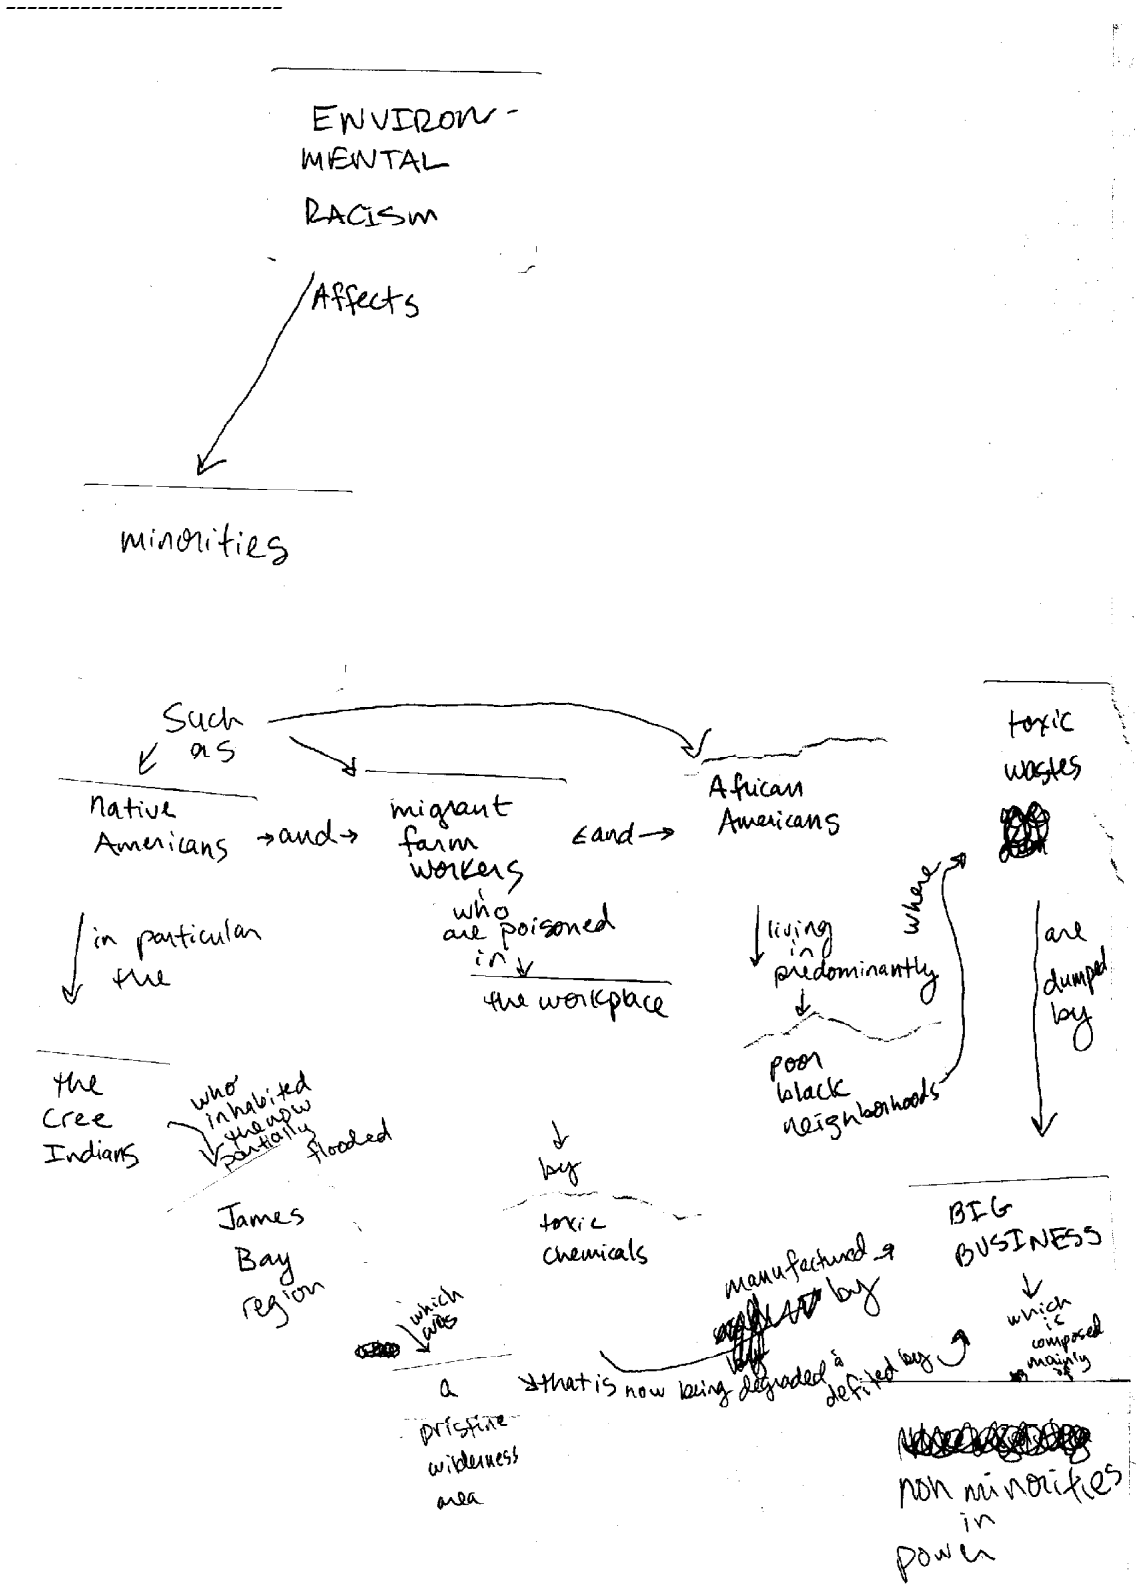 ENVIRON-
MENTAL
RACISM
Affects
minorities
Such
as
native
Americans
and
migrant
farm
workers
and
African
Americans
toxic
wastes
in particular
the
who
are poisoned
in
the workplace
living
in
predominantly
where
are
dumped
by
poor
black
neighborhoods
the
Cree
Indians
who
inhabited
the now
partially
flooded
James
Bay
region
by
toxic
chemicals
manufactured
by
BIG
BUSINESS
which
is
composed
mainly
of
which
was
a
pristine
wilderness
area
that is now being degraded &
defiled by
non minorities
in
power